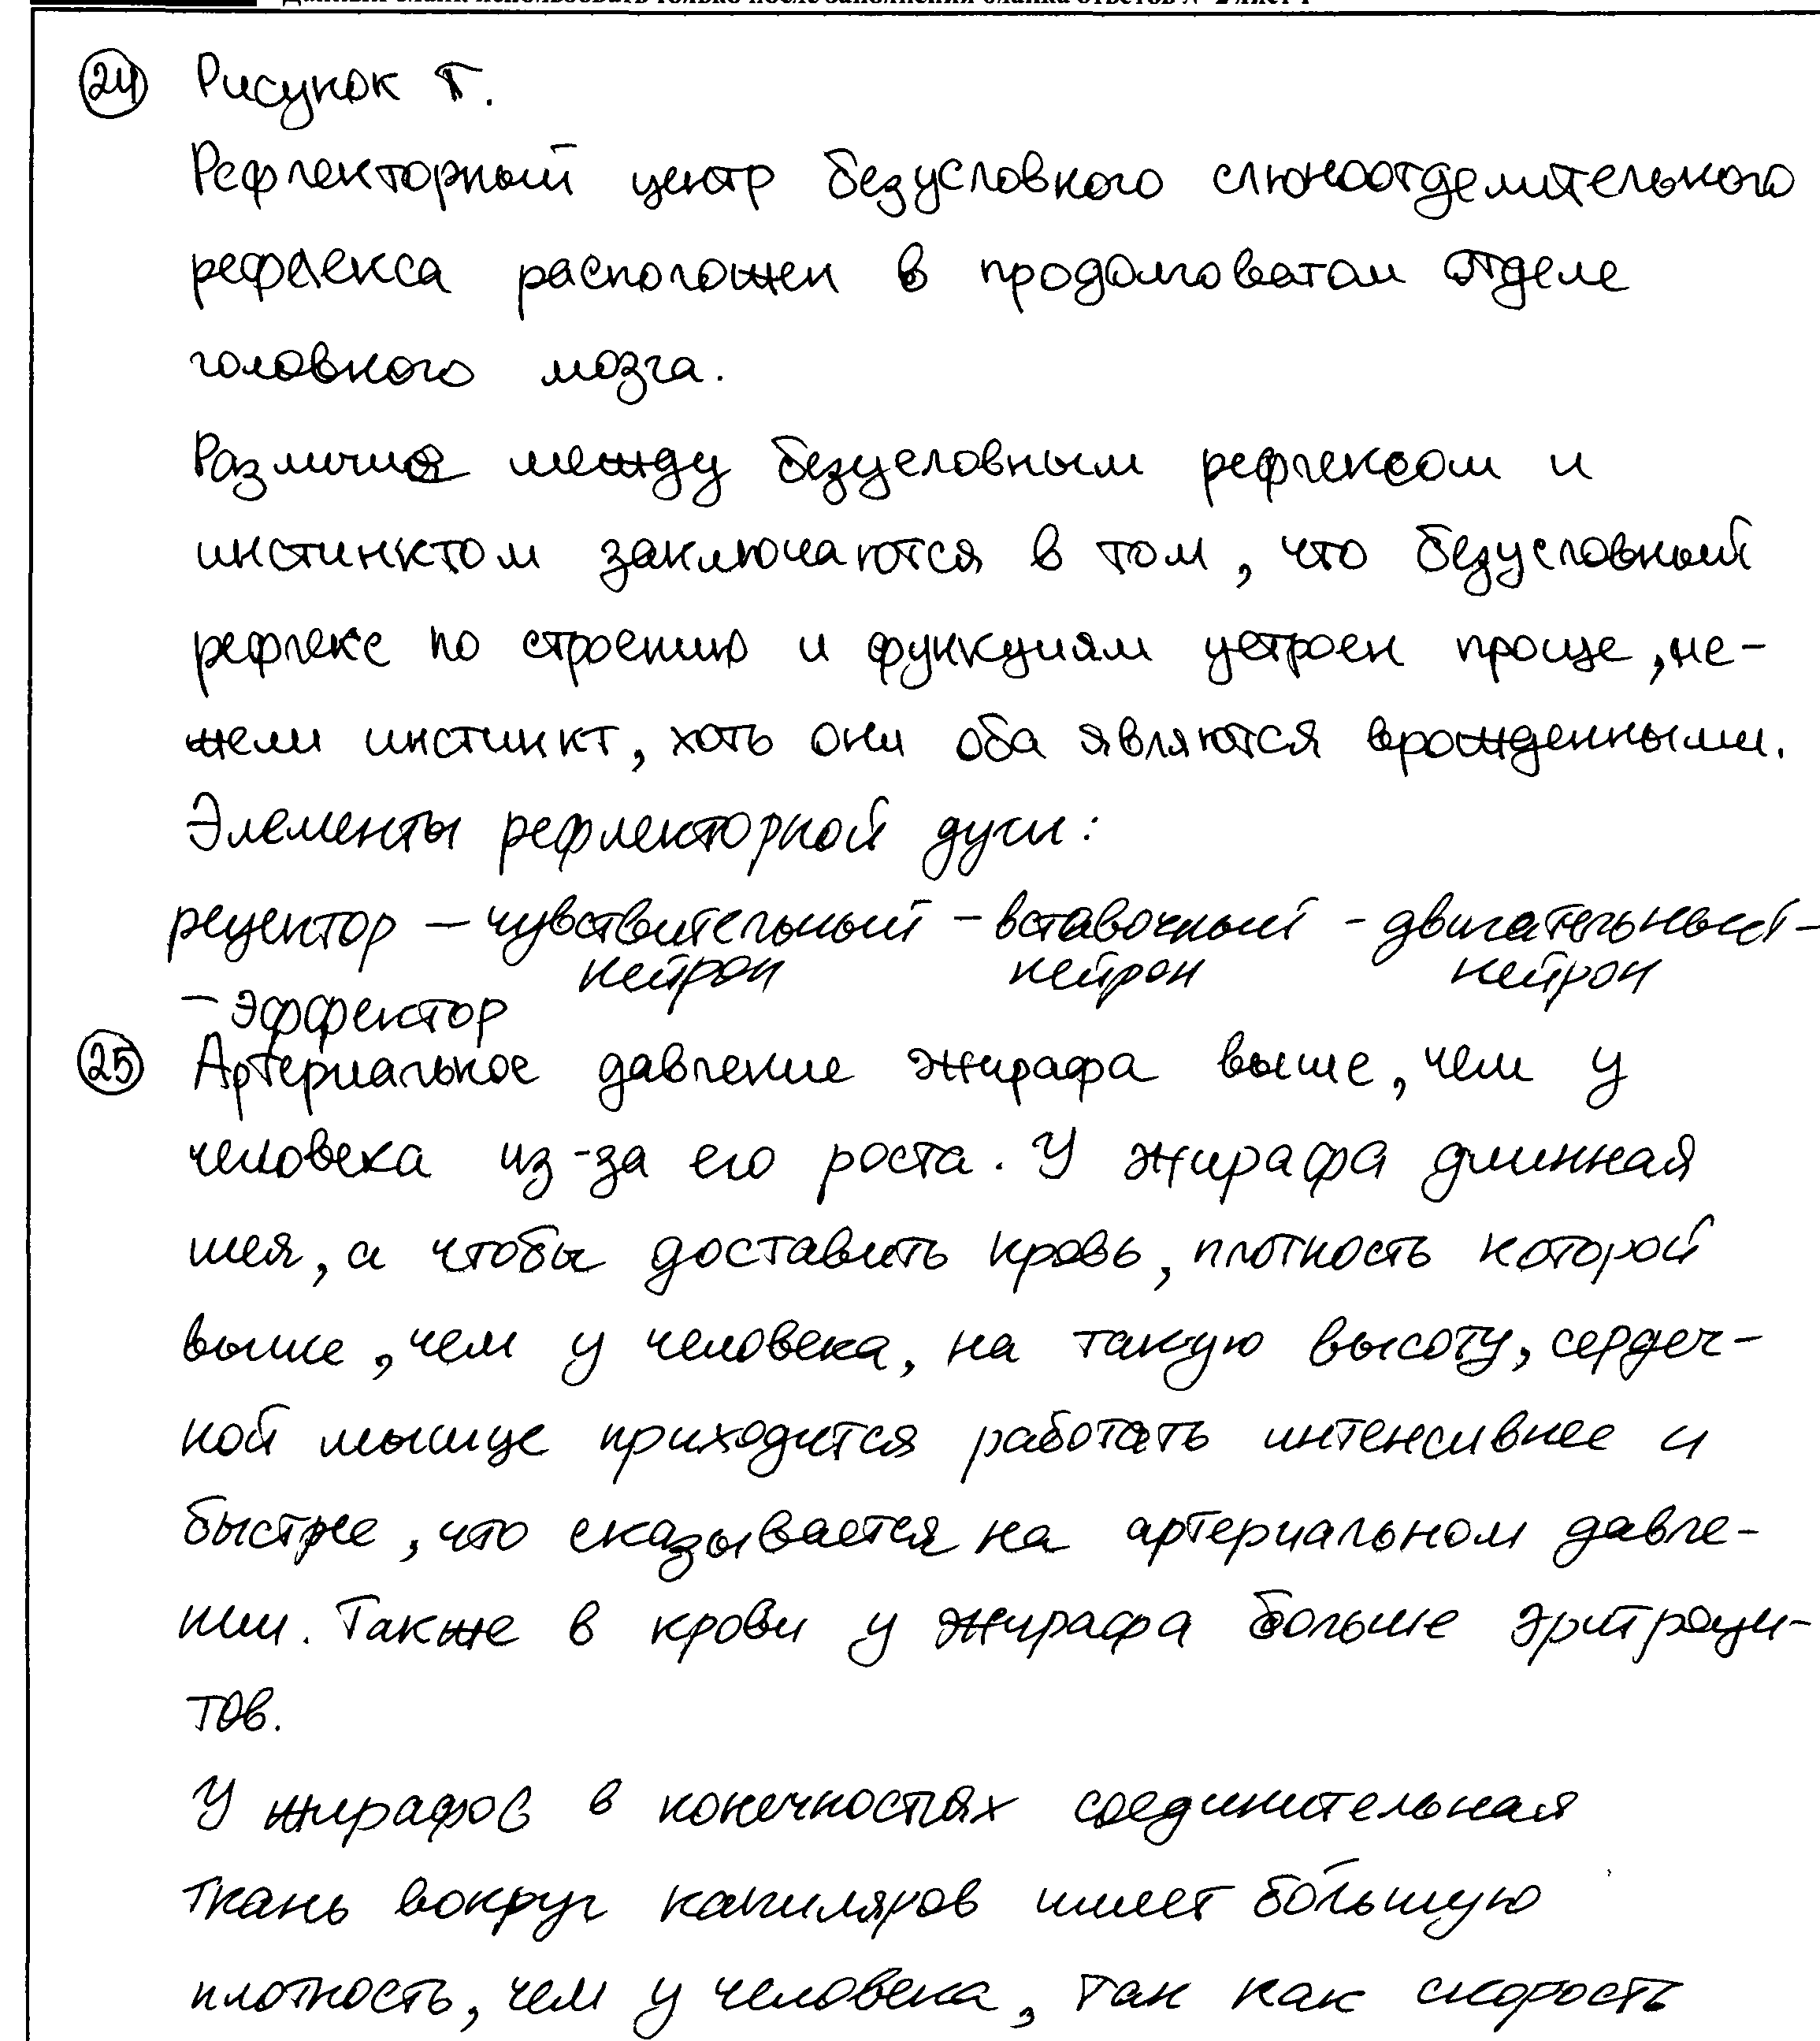 Данный бланк использовать только после заполнения бланка ответов № 2 лист 1
24 Рисунок Г.
Рефлекторный центр безусловного слюноотделительного
рефлекса расположен в продолговатом отделе
головного мозга.
Различия между безусловным рефлексом и
инстинктом заключаются в том, что безусловный
рефлекс по строению и функциям устроен проще, не-
жели инстинкт, хоть они оба являются врожденными.
Элементы рефлекторной дуги:
рецептор – чувствительный – вставочный – двигательный –
нейрон нейрон нейрон
– эффектор
25 Артериальное давление жирафа выше, чем у
человека из-за его роста. У жирафа длинная
шея, а чтобы доставить кровь, плотность которой
выше, чем у человека, на такую высоту, сердеч-
ной мышце приходится работать интенсивнее и
быстрее, что сказывается на артериальном давле-
нии. Также в крови у жирафа больше эритроци-
тов.
У жирафов в конечностях соединительная
ткань вокруг капиляров имеет бо́льшую
плотность, чем у человека, так как скорость